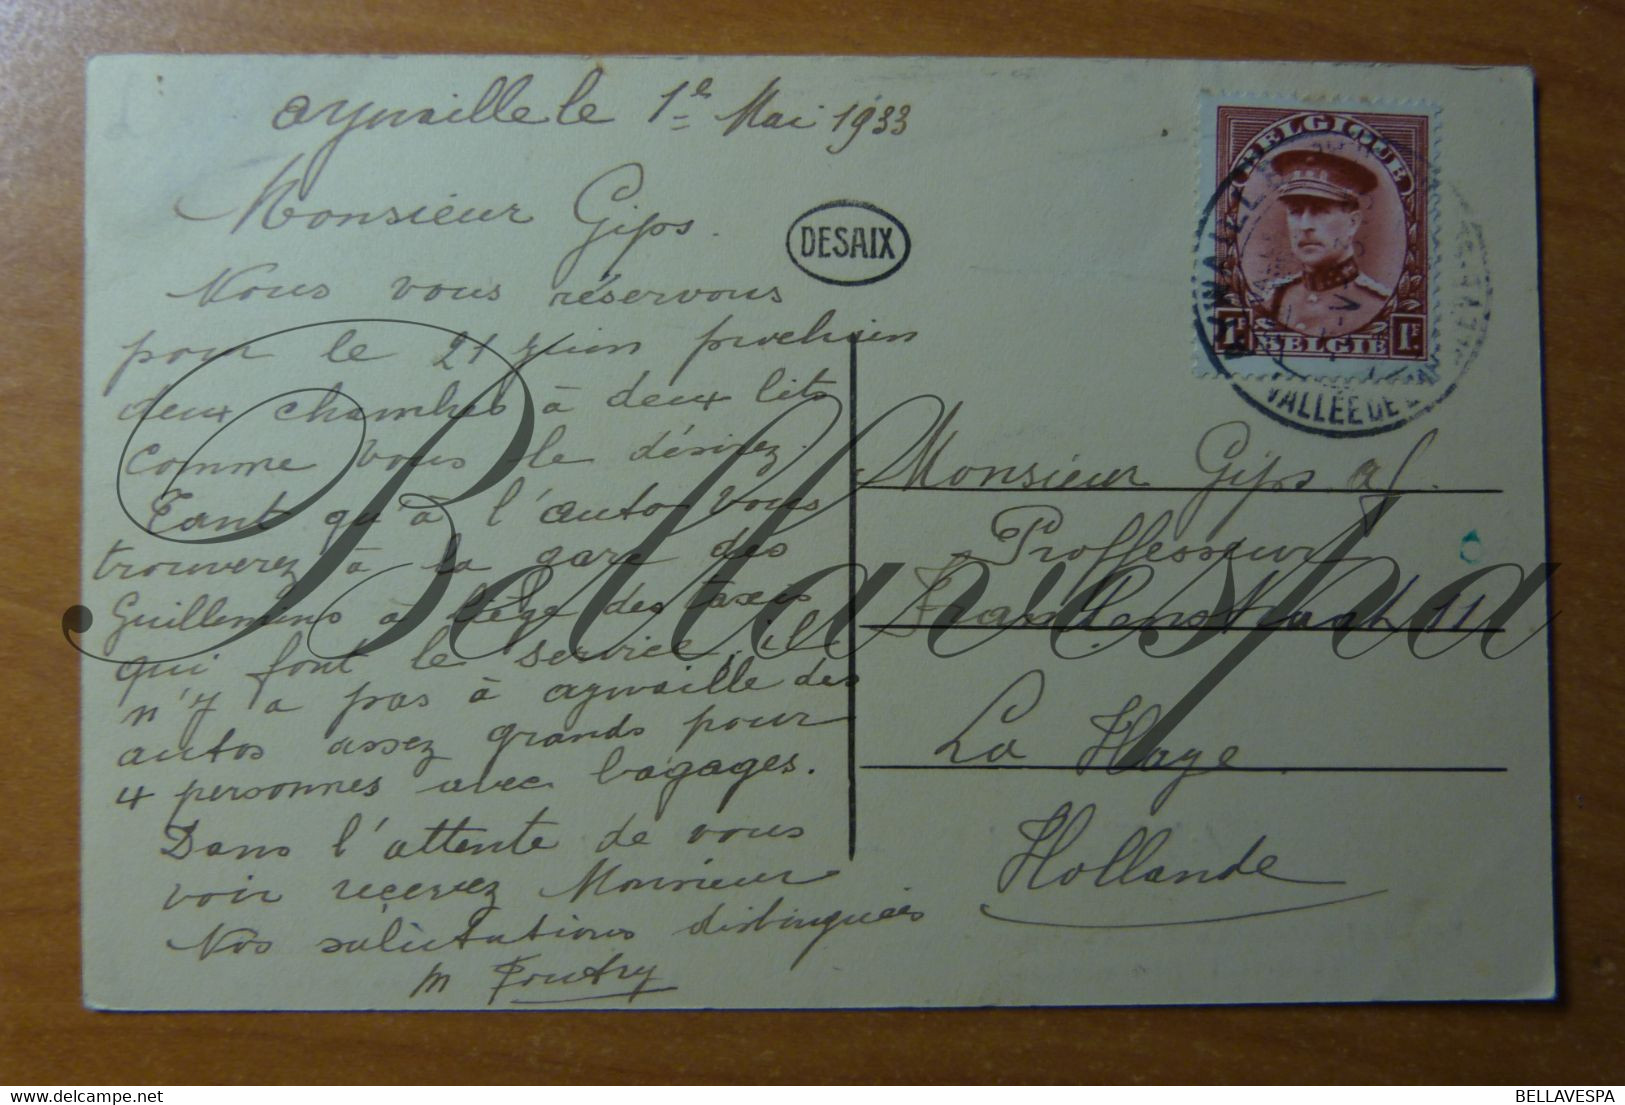 aywaille le 1e Mai 1933
Monsieur Gips.
Nous vous réservons
pour le 21 juin prochain
deux chambres à deux lits
comme vous le désirez.
Tant qu'à l'auto vous
trouverez à la gare des
Guillemins à Liège des taxis
qui font le service, il
n'y a pas à aywaille des
autos assez grands pour
4 personnes avec bagages.
Dans l'attente de vous
voir recevez Monsieur
Nos salutations distinguées
M
DESAIX
BELGIQUE
1F BELGIE 1F
VALLÉE DE
Monsieur Gips
Proffesseur
11
La Haye
Hollande
Bellavespa
BELLAVESPA